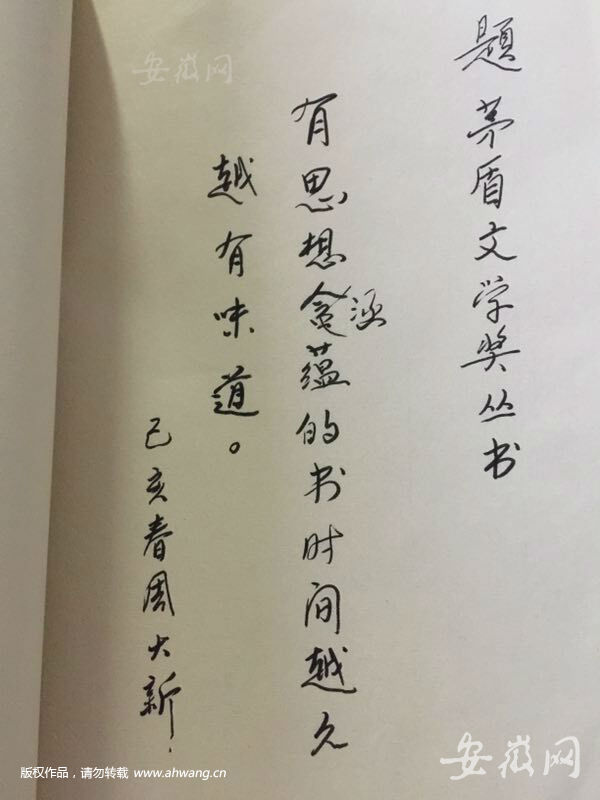 题茅盾文学奖丛书
有思想涵蕴的书时间越久
越有味道。
己亥春周大新.
安徽网
安徽网
版权作品，请勿转载 www.ahwang.cn